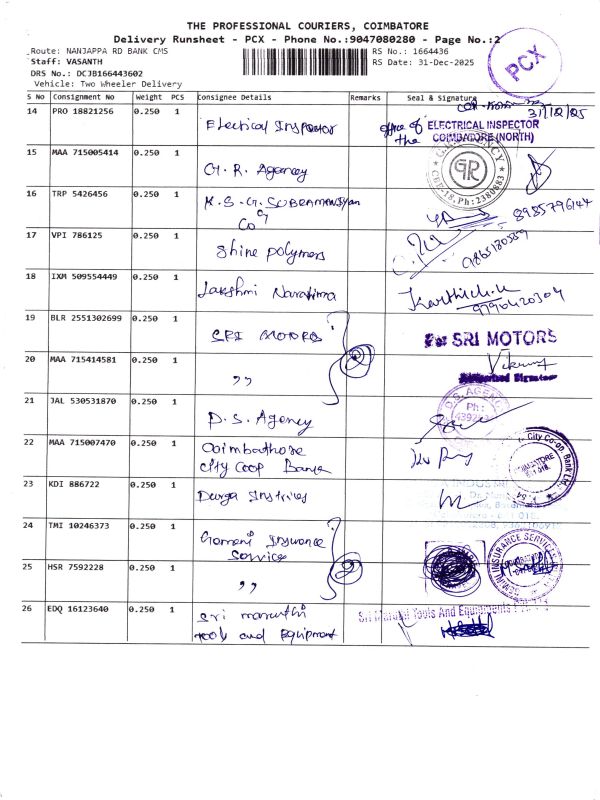 THE PROFESSIONAL COURIERS, COIMBATORE
Delivery Runsheet - PCX - Phone No.:9047080280 - Page No.:2
Route: NANJAPPA RD BANK CMS
RS No.: 1664436
Staff: VASANTH
RS Date: 31-Dec-2025
DRS No.: DCJB166443602
Vehicle: Two Wheeler Delivery
PCX
S No Consignment No Weight PCS Consignee Details Remarks Seal & Signature
31/12/25
14 PRO 18821256 0.250 1 Electrical Inspector office of the ELECTRICAL INSPECTOR
COIMBATORE (NORTH)
15 MAA 715005414 0.250 1 G. R. Agency
CBE-18, Ph: 2380683
16 TRP 5426456 0.250 1 K.S.G. SUBRAMANSyan
Co
8985796144
17 VPI 786125 0.250 1 Shine polymers
18 IXM 509554449 0.250 1 Lakshmi Narasima Karthick.K
9790420304
19 BLR 2551302699 0.250 1 SRI MOTORS For SRI MOTORS
20 MAA 715414581 0.250 1 ,,
21 JAL 530531870 0.250 1 D.S. Agency
D.S. AGENCY
Ph:
22 MAA 715007470 0.250 1 Coimbathore
City Coop Bank
City Co-op. Bank Ltd.
23 KDI 886722 0.250 1 Durga Instries
24 TMI 10246373 0.250 1 Gomeni Insurance
Service
INSURANCE SERVICE
25 HSR 7592228 0.250 1 ,,
26 EDQ 16123640 0.250 1 Sri maruthi
tools and Equipment
Sri Maruthi Tools And Equipments